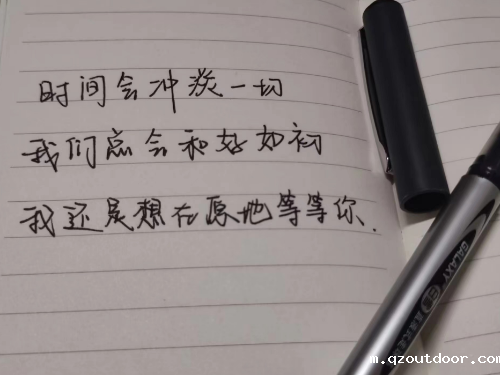 时间会冲淡一切
我们总会和好如初
我还是想在原地等等你.
GALAXY
m.qzoutdoor.com